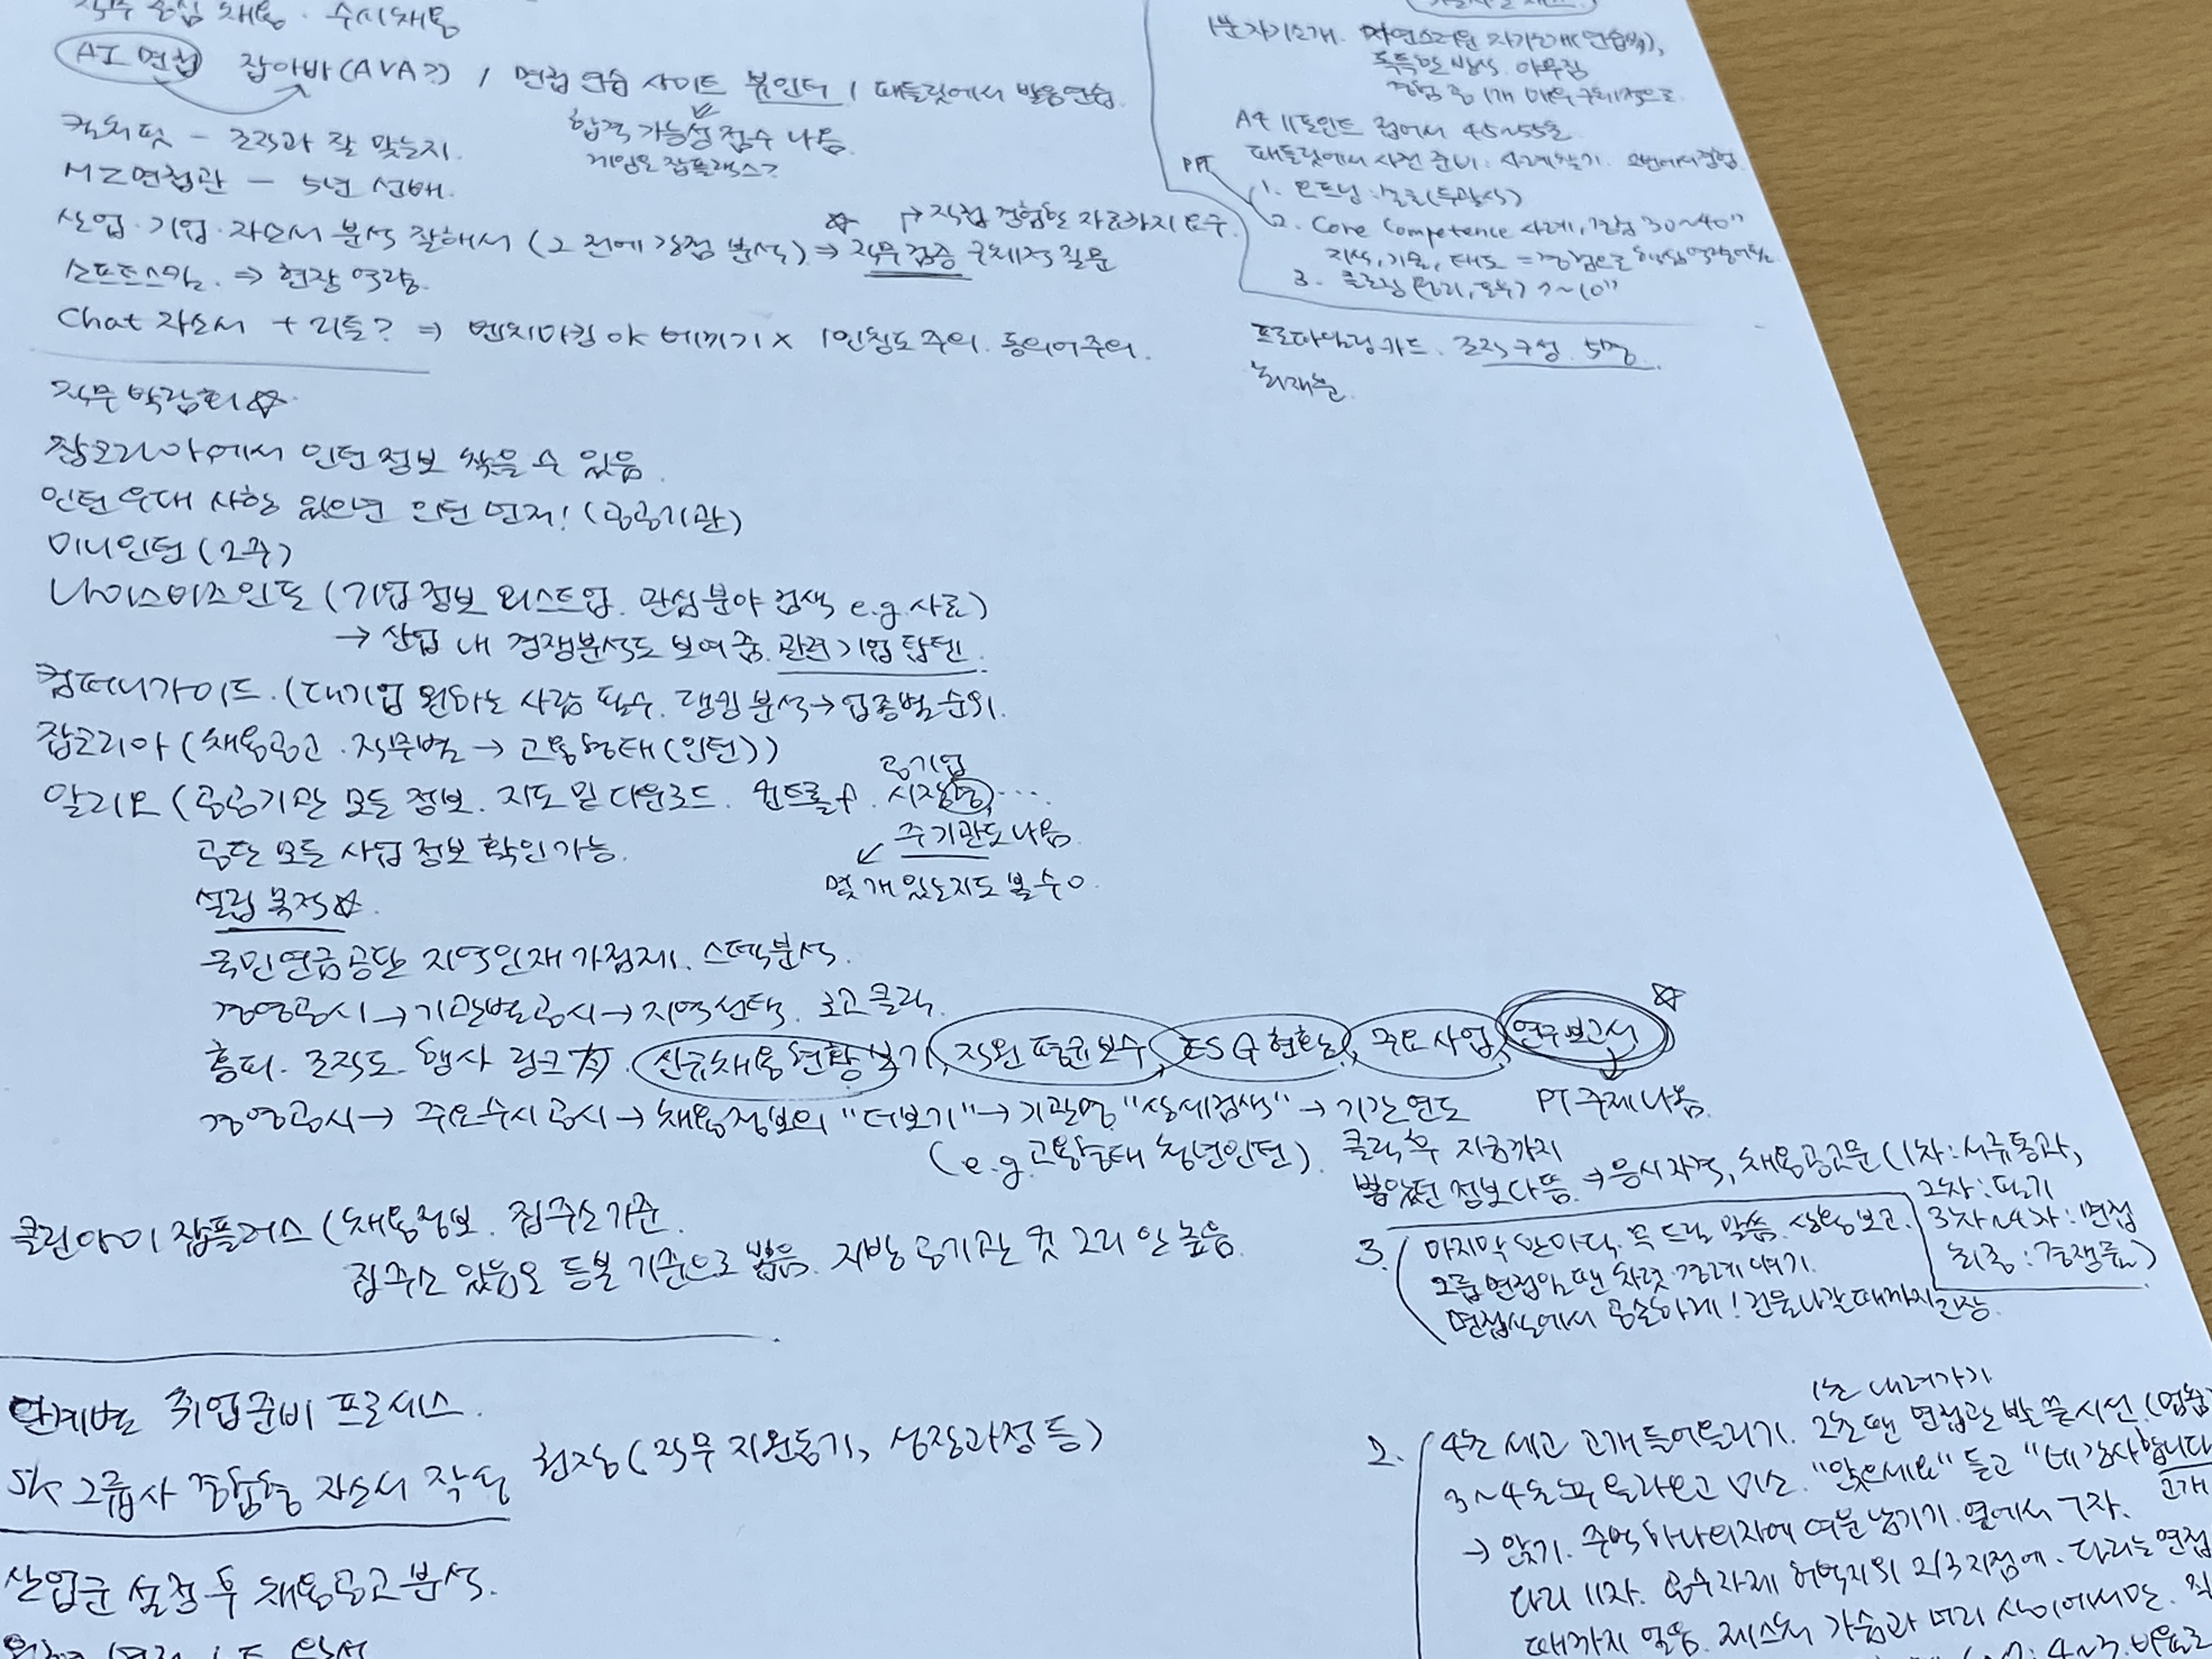 직무 중심 채용. 수시채용
AI 면접 잡아바(AVA?) / 면접 연습 사이트 뷰인터 / 패들릿에서 발음연습
합격 가능성 점수 나옴.
게임은 잡플렉스?
컬처핏 - 조직과 잘 맞는지.
MZ면접관 - 5년 선배.
산업·기업·자소서 분석 잘해서 (2 전에 강점 분석) ⇒ 직무검증 구체적 질문
☆ ↱직접 경험한 자료까지 요구.
소프트스킬. ⇒ 현장 역량.
Chat 자소서 + 리튼? ⇒ 벤치마킹 only 베끼기 x 1인칭도 주의. 동의어주의.
직무박람회☆
잡코리아에서 인턴정보 찾을 수 있음.
인턴 우대 사항 있으면 인턴 먼저! (공공기관)
미니인턴 (2주)
나이스비즈인포 (기업정보 리스트업. 관심분야 검색 e.g. 사료)
→ 산업 내 경쟁분석도 보여줌. 관련기업 탑텐.
컴퍼니가이드. (대기업 원하는 사람 필수. 랭킹분석→업종별 순위.
잡코리아 (채용공고. 직무별 → 고용형태(인턴))
알리오 (공공기관 모든 정보. 지도 및 다운로드. 컨트롤 f. 시장형, ...
공기업
주기관도 나옴.
몇 개 있는지도 볼 수 o.
공단 모든 사업 정보 확인가능.
설립 목적☆.
국민연금공단 지역인재 가점제. 스펙분석.
경영공시→기관별공시→지역선택. 로고 클릭.
홈피. 조직도. 행사 링크 有. 신규채용현황 보기, 직원 평균보수, ESG 현황, 주요 사업, 연구보고서 ☆
PT 주제나옴.
경영공시→ 주요수시공시→ 채용정보의 "더보기"→기관명 "상세검색" → 기간 연도
(e.g. 고용형태 청년인턴). 클릭 후 지금까지
뽑았던 정보 다 뜸. ⇒ 응시자격, 채용공고문 (1차: 서류통과,
2차: 필기
3차~4차: 면접
최종: 경쟁률)
클린아이 잡플러스 (채용정보. 집주소 기준.
집주소 있음 o 등본 기준으로 뽑음. 지방 공기관 컷 그리 안 높음.
단계별 취업준비 프로세스.
SK 그룹사 경험형 자소서 작성 권장 (직무 지원동기, 성장과정 등)
산업군 설정 후 채용공고 분석.
1분 자기소개. 자연스러운 자기소개(연습必),
독특한 방식.
경험 중 1개 매우 구체적으로.
A4 11포인트 접어서 45~55초
패들릿에서 사전 준비: 사례찾기.
PPT
1. 오프닝:
2. Core Competence 사례, 경험 30~40"
지식, 기술, 태도 = 경험으로
3. 클로징 7~10"
프로파일링카드. 조직구성. 5명.
최재훈.
3. (마지막 한마디. 꼭 드릴 말씀.
그룹면접일 땐 차렷. 경례
면접실에서 공손하게! 건물나갈때까지긴장.
1초 내려가기
2. 4초 세고 고개 들어올리기. 2초 땐 면접관 발 끝 시선.
3~4초 쭉 올라오고 미소. "앉으세요" 듣고 "네 감사합니다"
고개
→ 앉기. 주먹 하나 의자에 여분 남기기. 옆에서 ㄱ자.
다리 11자. 허벅지의 2/3 지점에. 다리는 면접
때까지 얼음. 제스처 가슴과 머리 사이에서만.